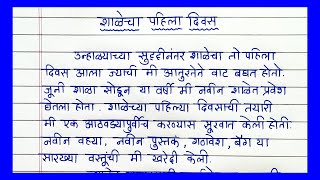 शाळेचा पहिला दिवस
उन्हाळ्याच्या सुट्टीनंतर शाळेचा तो पहिला
दिवस आला ज्याची मी आतुरतेने वाट बघत होतो.
जूनी शाळा सोडून या वर्षी मी नवीन शाळेत प्रवेश
घेतला होता. शाळेच्या पहिल्या दिवसाची तयारी
मी एक आठवड्यापूर्वीच करण्यास सुरवात केली होती.
नवीन वह्या, नवीन पुस्तक, गणवेश, बॅग या
सारख्या वस्तूंची मी खरेदी केली.